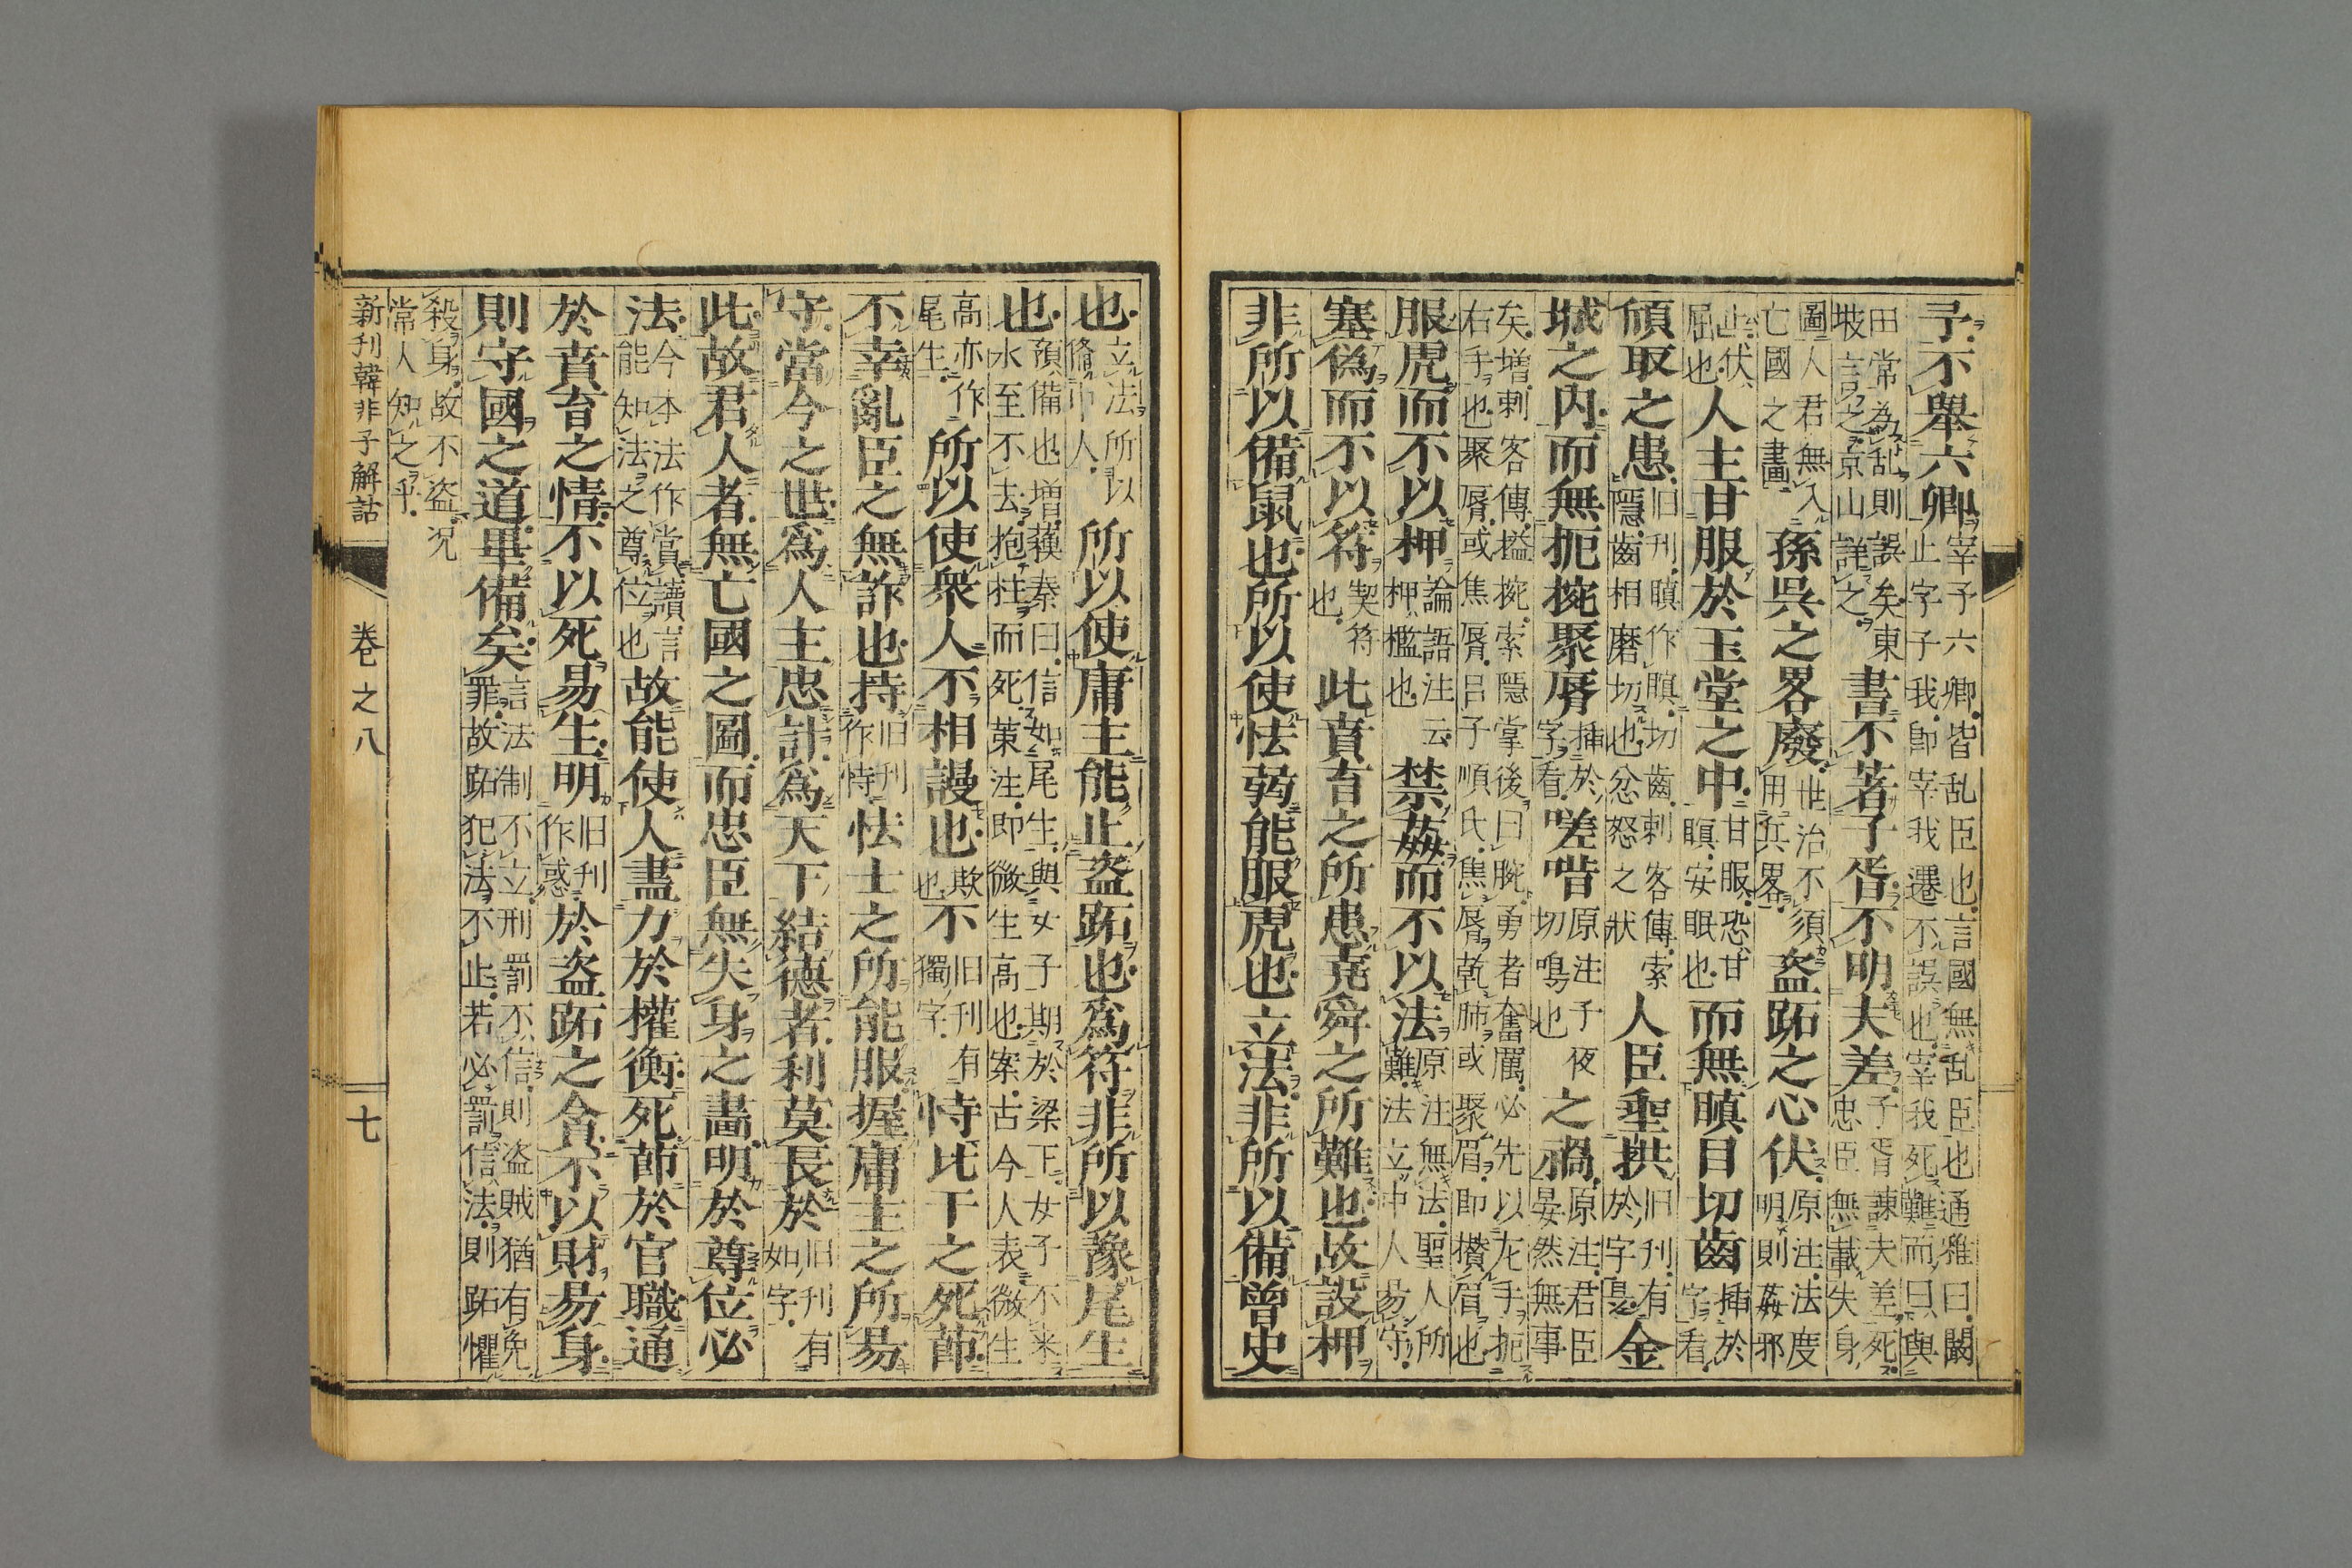 予不舉六卿宰予六卿皆乱臣也言國無乱臣也通雅曰闞止字子我卽宰我遷不誤也宰我死難而曰與
田常為乱則誤矣東坡言之京山詳之書不著子胥不明夫差子胥諫夫差死忠臣無載失身
圖人君無入亡國之畫孫吳之畧廢世治不須用兵畧盗跖之心伏原注法度明則姦邪
止伏屈也人主甘服於玉堂之中甘服恐甘瞑安眠也而無瞋目切齒挿於字看
傾取之患旧刊瞋作瞋切齒刺客傳索隱齒相磨切也忿怒之狀人臣垂拱旧刊有於字是金
城之内而無扼捥聚脣挿於字看嗟唶原注子夜切鳴也之禍原注君臣晏然無事
矣増刺客傳搤捥索隱掌後曰腕勇者奮厲必先以左手扼右手也聚脣或焦脣呂子順民焦脣乾肺或聚眉即攅眉也
服虎而不以柙論語注云柙檻也禁姦而不以法原注無法聖人所難法立中人易守
塞偽而不以符契符也此賁育之所患堯舜之所難也故設柙
非所以備鼠也所以使怯弱能服虎也立法非所以備曾史
也立法所以脩中人所以使庸主能止盗跖也為符非所以豫尾生
也預備也増蘇秦曰信如尾生與女子期於梁下女子不来水至不去抱柱而死菓注即微生高也案古今人表微生
高亦作尾生所以使衆人不相謾也欺也不旧刊有獨字恃比干之死節
不幸亂臣之無詐也持旧刊作恃怯士之所能服握庸主之所易
守當今之世為人主忠計為天下結德者利莫長於旧刊有如字
此故君人者無亡國之圖而忠臣無失身之畵明於尊位必
法今本法作賞讀言能知法之尊位也故能使人盡力於權衡死節於官職通
於賁育之情不以死易生明旧刊作惑於盗跖之貪不以財易身
則守國之道畢備矣言法制不立刑罰不信則盗賊猶有免罪故跖犯法不止若必罰信法則跖懼
殺身故不盗况常人知之乎
新刊韓非子解詁 卷之八 七